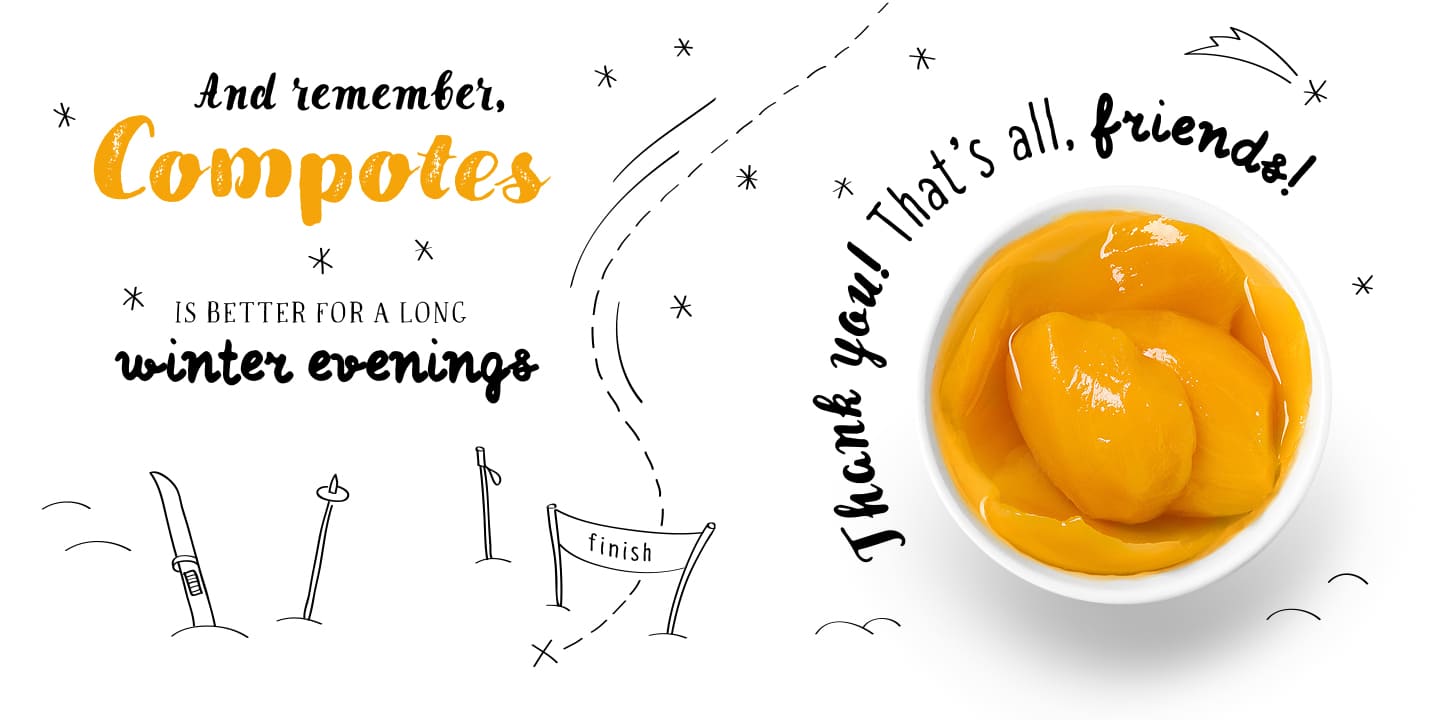 And remember,
Compotes
IS BETTER FOR A LONG
winter evenings
finish
Thank you! That's all, friends!